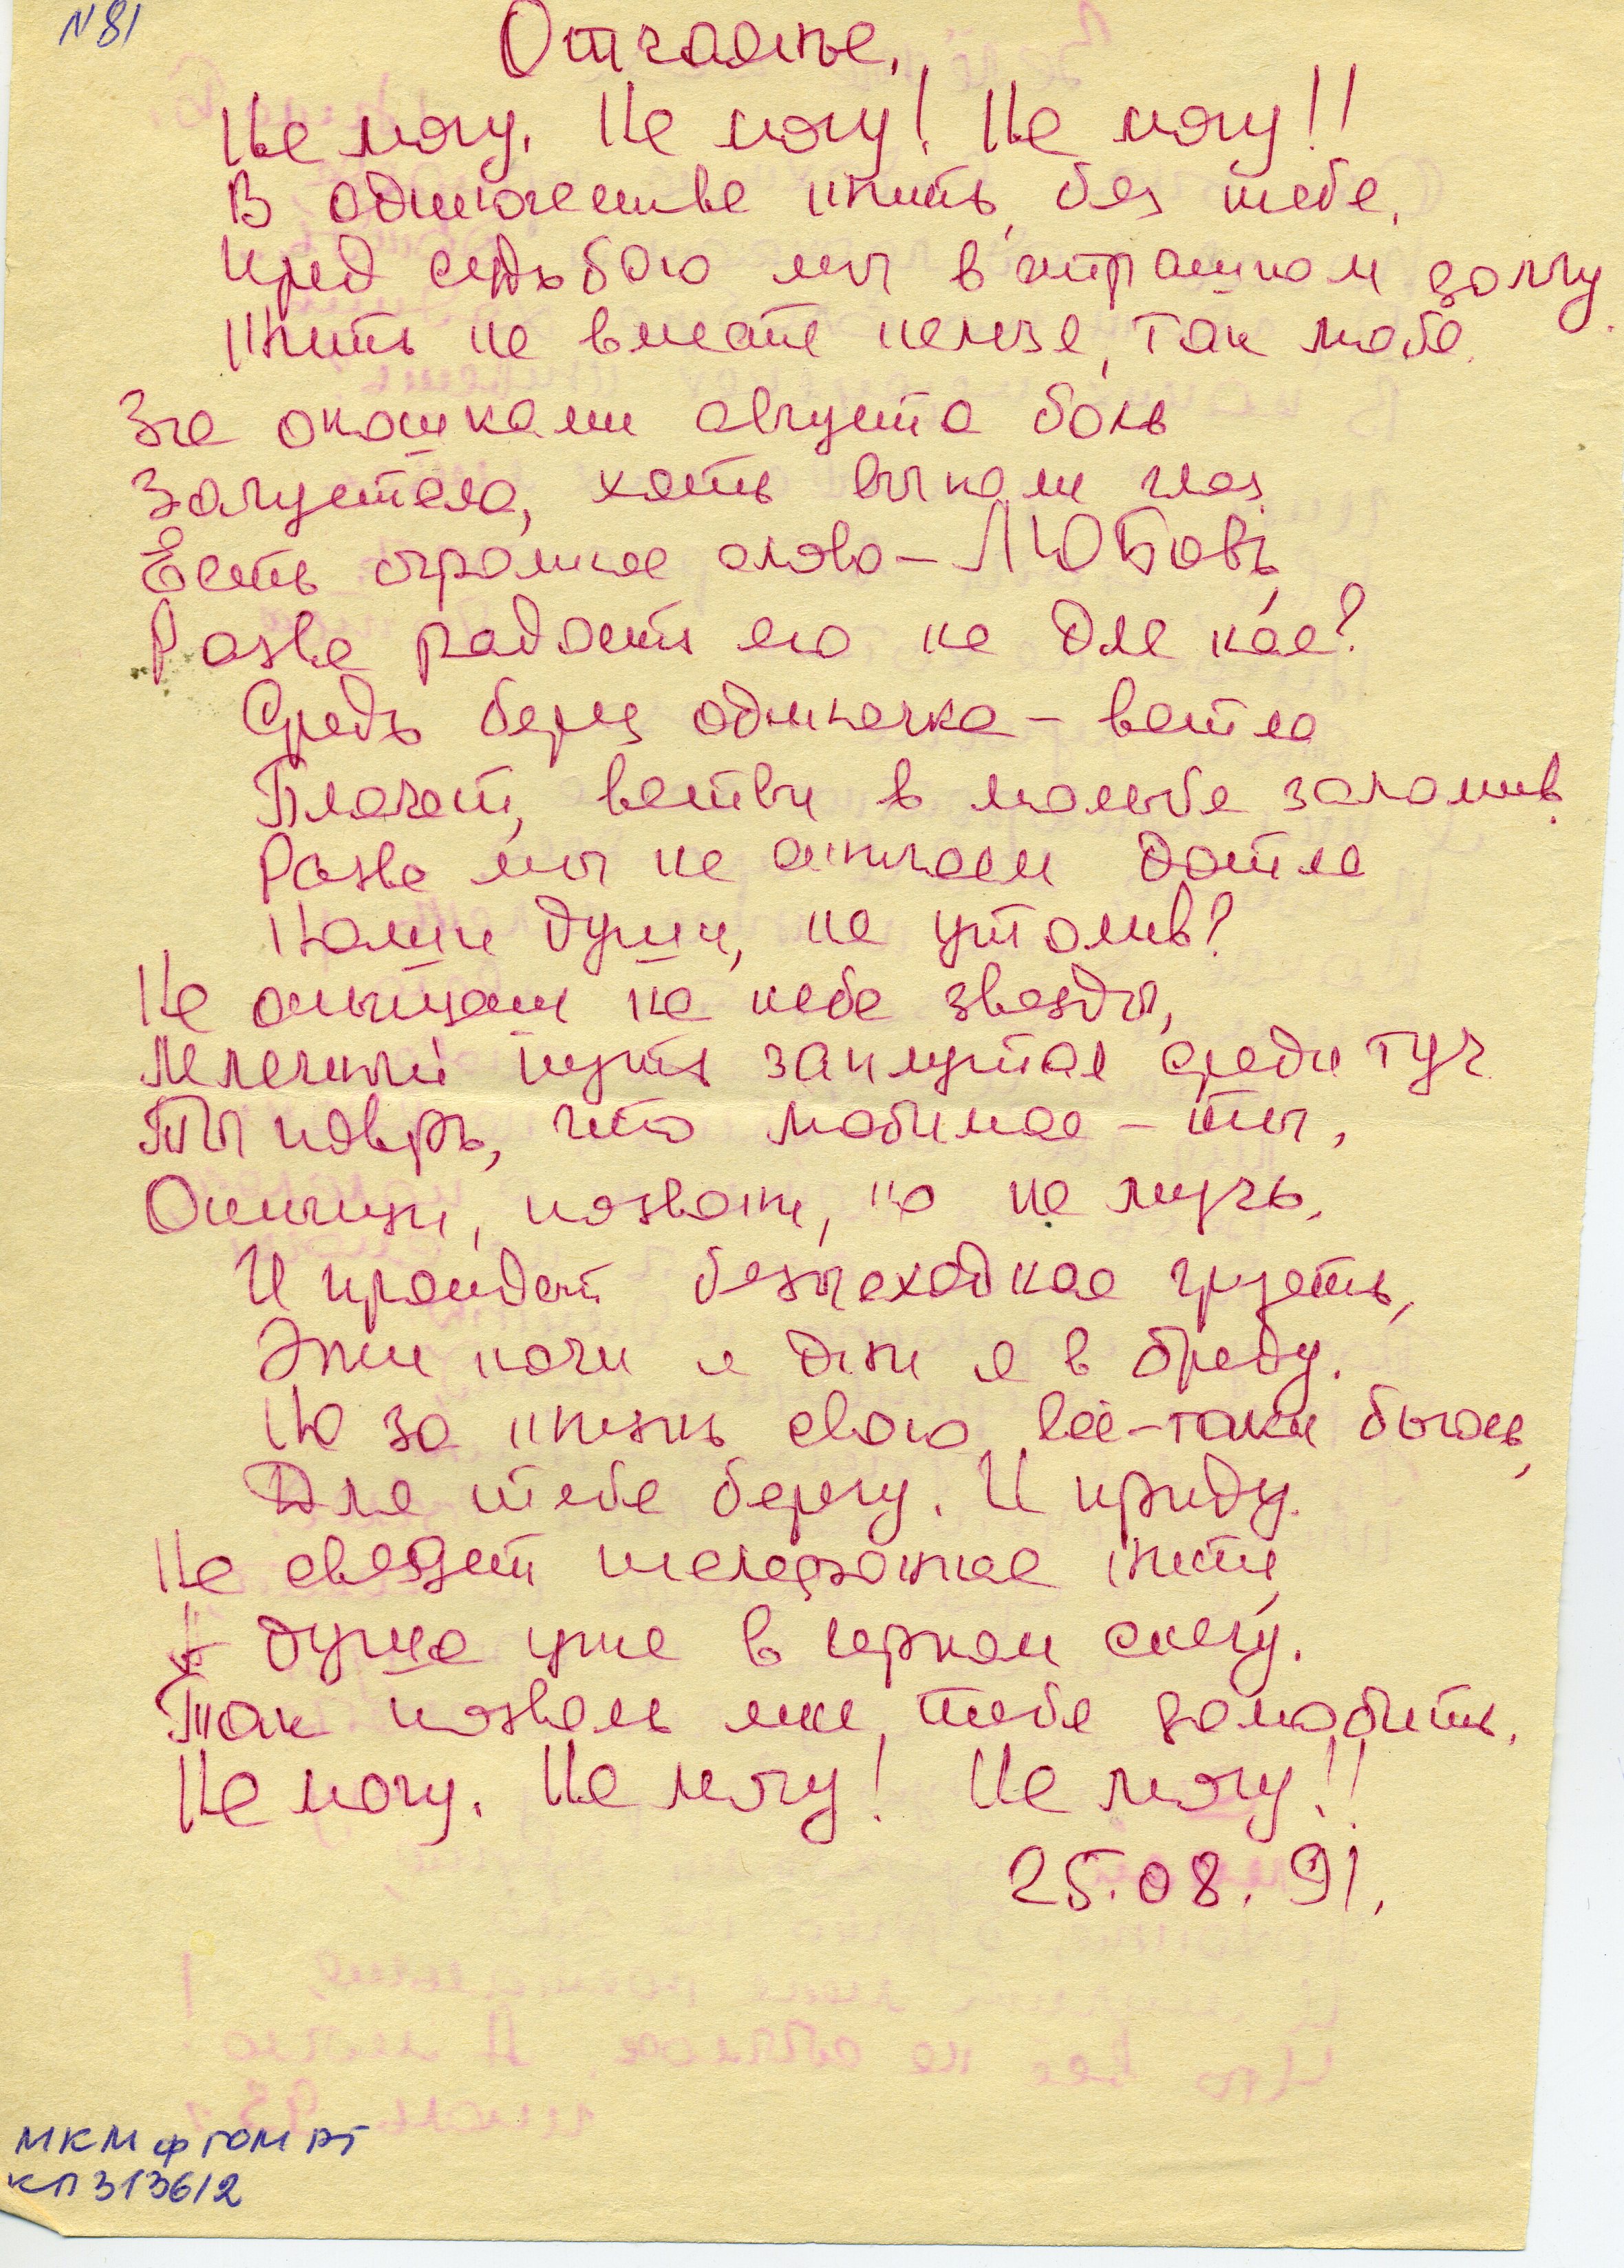 N 81
Отчаянье.
Не могу. Не могу! Не могу!!
В одиночестве жить, без тебя.
Пред судьбою мы в страшном долгу.
Жить не вместе нельзя, так любя.
За окошками августа боль
Загустела, хоть выколи глаз.
Есть огромное слово – ЛЮБовь,
Разве радость его не для нас?
Средь берез одиночка – ветла
Плачет, ветви в мольбе заломив.
Разве мы не сжигаем дотла
Наши души, не утолив?
Не отыщет на небе звезды,
Млечный путь заплутал среди туч.
Ты поверь, что любимая – ты,
Отыщи, позвони, но не мучь.
И пройдет безысходная грусть,
Эти ночи и дни я в бреду.
Но за жизнь свою всё-таки бьюсь,
Для тебя берегу. И приду.
Не связует телефонная нить,
душа уже в черном снегу.
Так позволь мне, тебя долюбить.
Не могу. Не могу! Не могу!!
25.08.91.
МКМ ф ГОМ РТ
КП 3136/2